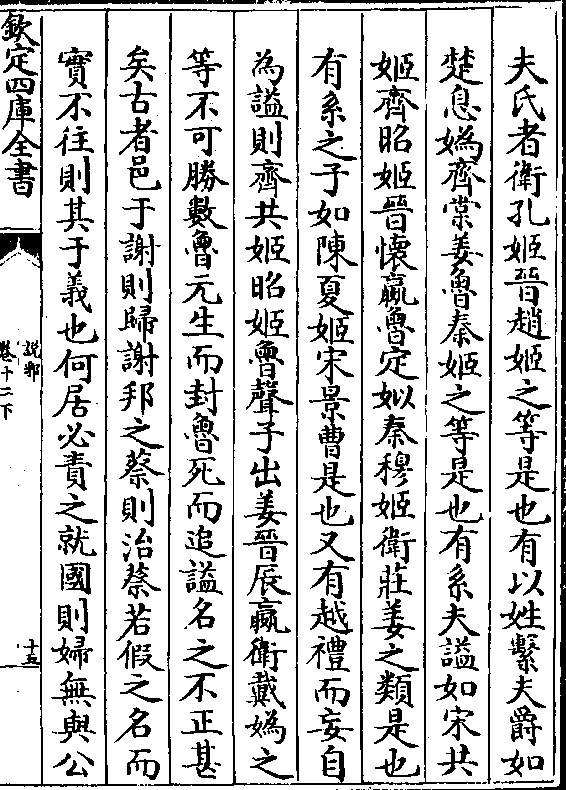 夫氏者衛孔姬晉趙姬之等是也有以姓繫夫爵如
楚息嬀齊棠姜魯秦姬之等是也有系夫謚如宋共
姬齊昭姬晉懷嬴魯定姒秦穆姬衛莊姜之類是也
有系之子如陳夏姬宋景曹是也又有越禮而妄自
為謚則齊共姬昭姬魯聲子出姜晉辰嬴衛戴嬀之
等不可勝數魯元生而封魯死而追謚名之不正甚
矣古者邑于謝則歸謝邦之蔡則治蔡若假之名而
實不往則其于義也何居必責之就國則婦無與公
欽定四庫全書
說郛
卷十二下
十五